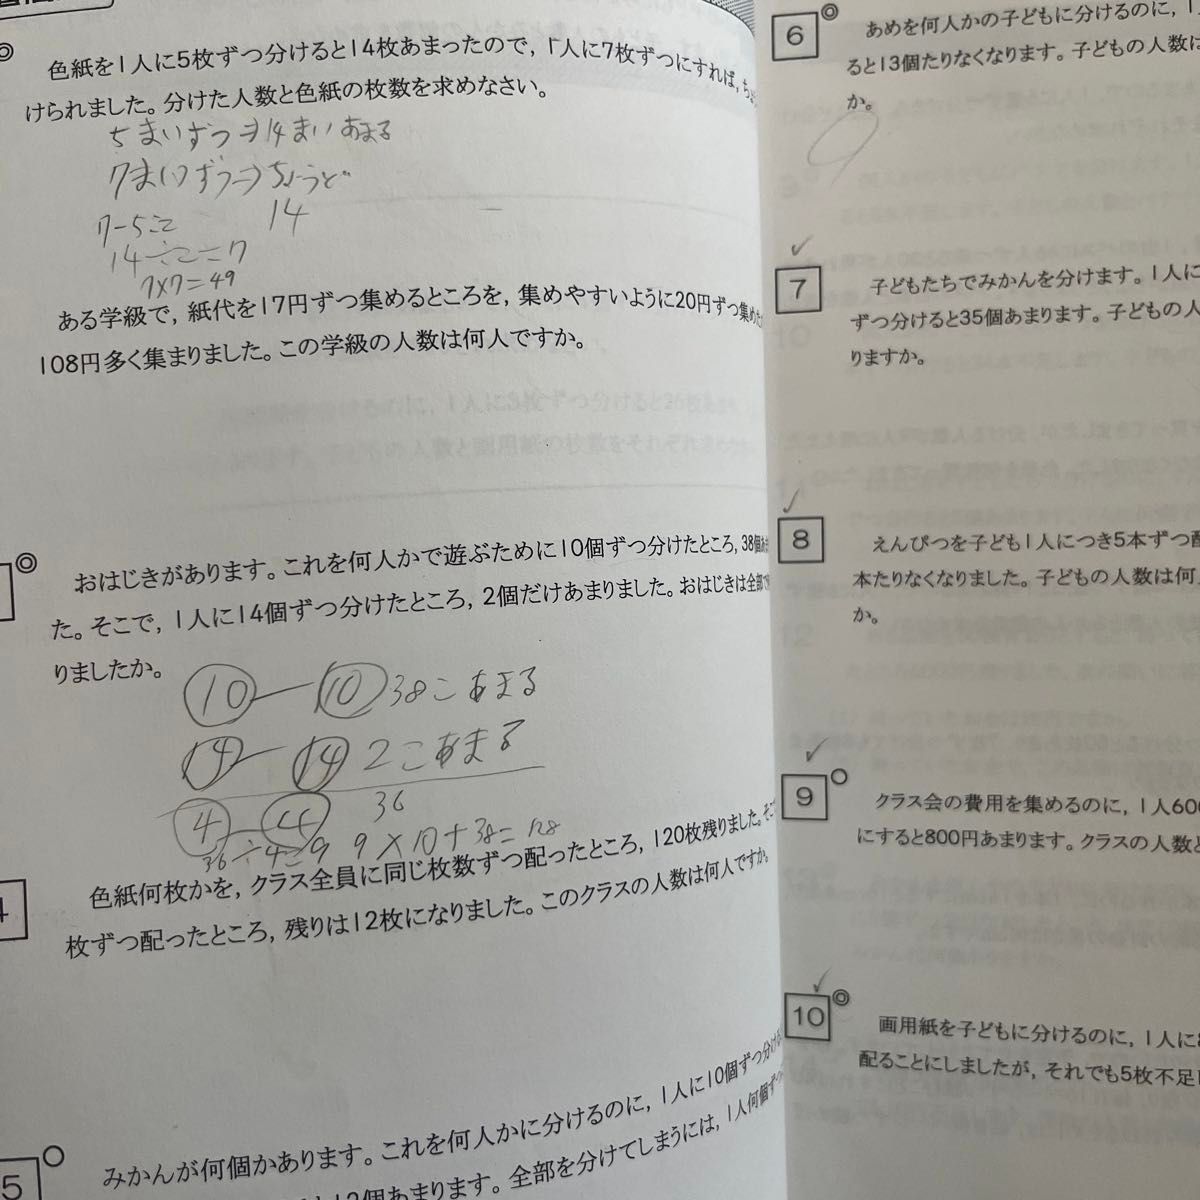 色紙を1人に5枚ずつ分けると14枚あまったので,1人に7枚ずつにすれば,
けられました。分けた人数と色紙の枚数を求めなさい。
5まいずつ→14まいあまる
7まいずつ→ちょうど
7-5=2 14
14÷2=7
7×7=49
ある学級で,紙代を17円ずつ集めるところを,集めやすいように20円ずつ集めた
108円多く集まりました。この学級の人数は何人ですか。
おはじきがあります。これを何人かで遊ぶために10個ずつ分けたところ,38個
た。そこで,1人に14個ずつ分けたところ,2個だけあまりました。おはじきは全部で
りましたか。
10 — 10 38こあまる
14 — 14 2こあまる
4 — 4 36
36÷4=9 9×10+38=128
4
色紙何枚かを,クラス全員に同じ枚数ずつ配ったところ,120枚残りました。
枚ずつ配ったところ,残りは12枚になりました。このクラスの人数は何人ですか。
5
みかんが何個かあります。これを何人かに分けるのに,1人に10個ずつ分ける
12個あまります。全部を分けてしまうには,1人何個ずつ
6
あめを何人かの子どもに分けるのに,
ると13個たりなくなります。子どもの人数は
か。
7
子どもたちでみかんを分けます。1人に
ずつ分けると35個あまります。子どもの人
りますか。
8
えんぴつを子ども1人につき5本ずつ配
本たりなくなりました。子どもの人数は何
か。
9
クラス会の費用を集めるのに,1人600
にすると800円あまります。クラスの人数と
10
画用紙を子どもに分けるのに,1人に8
配ることにしましたが,それでも5枚不足